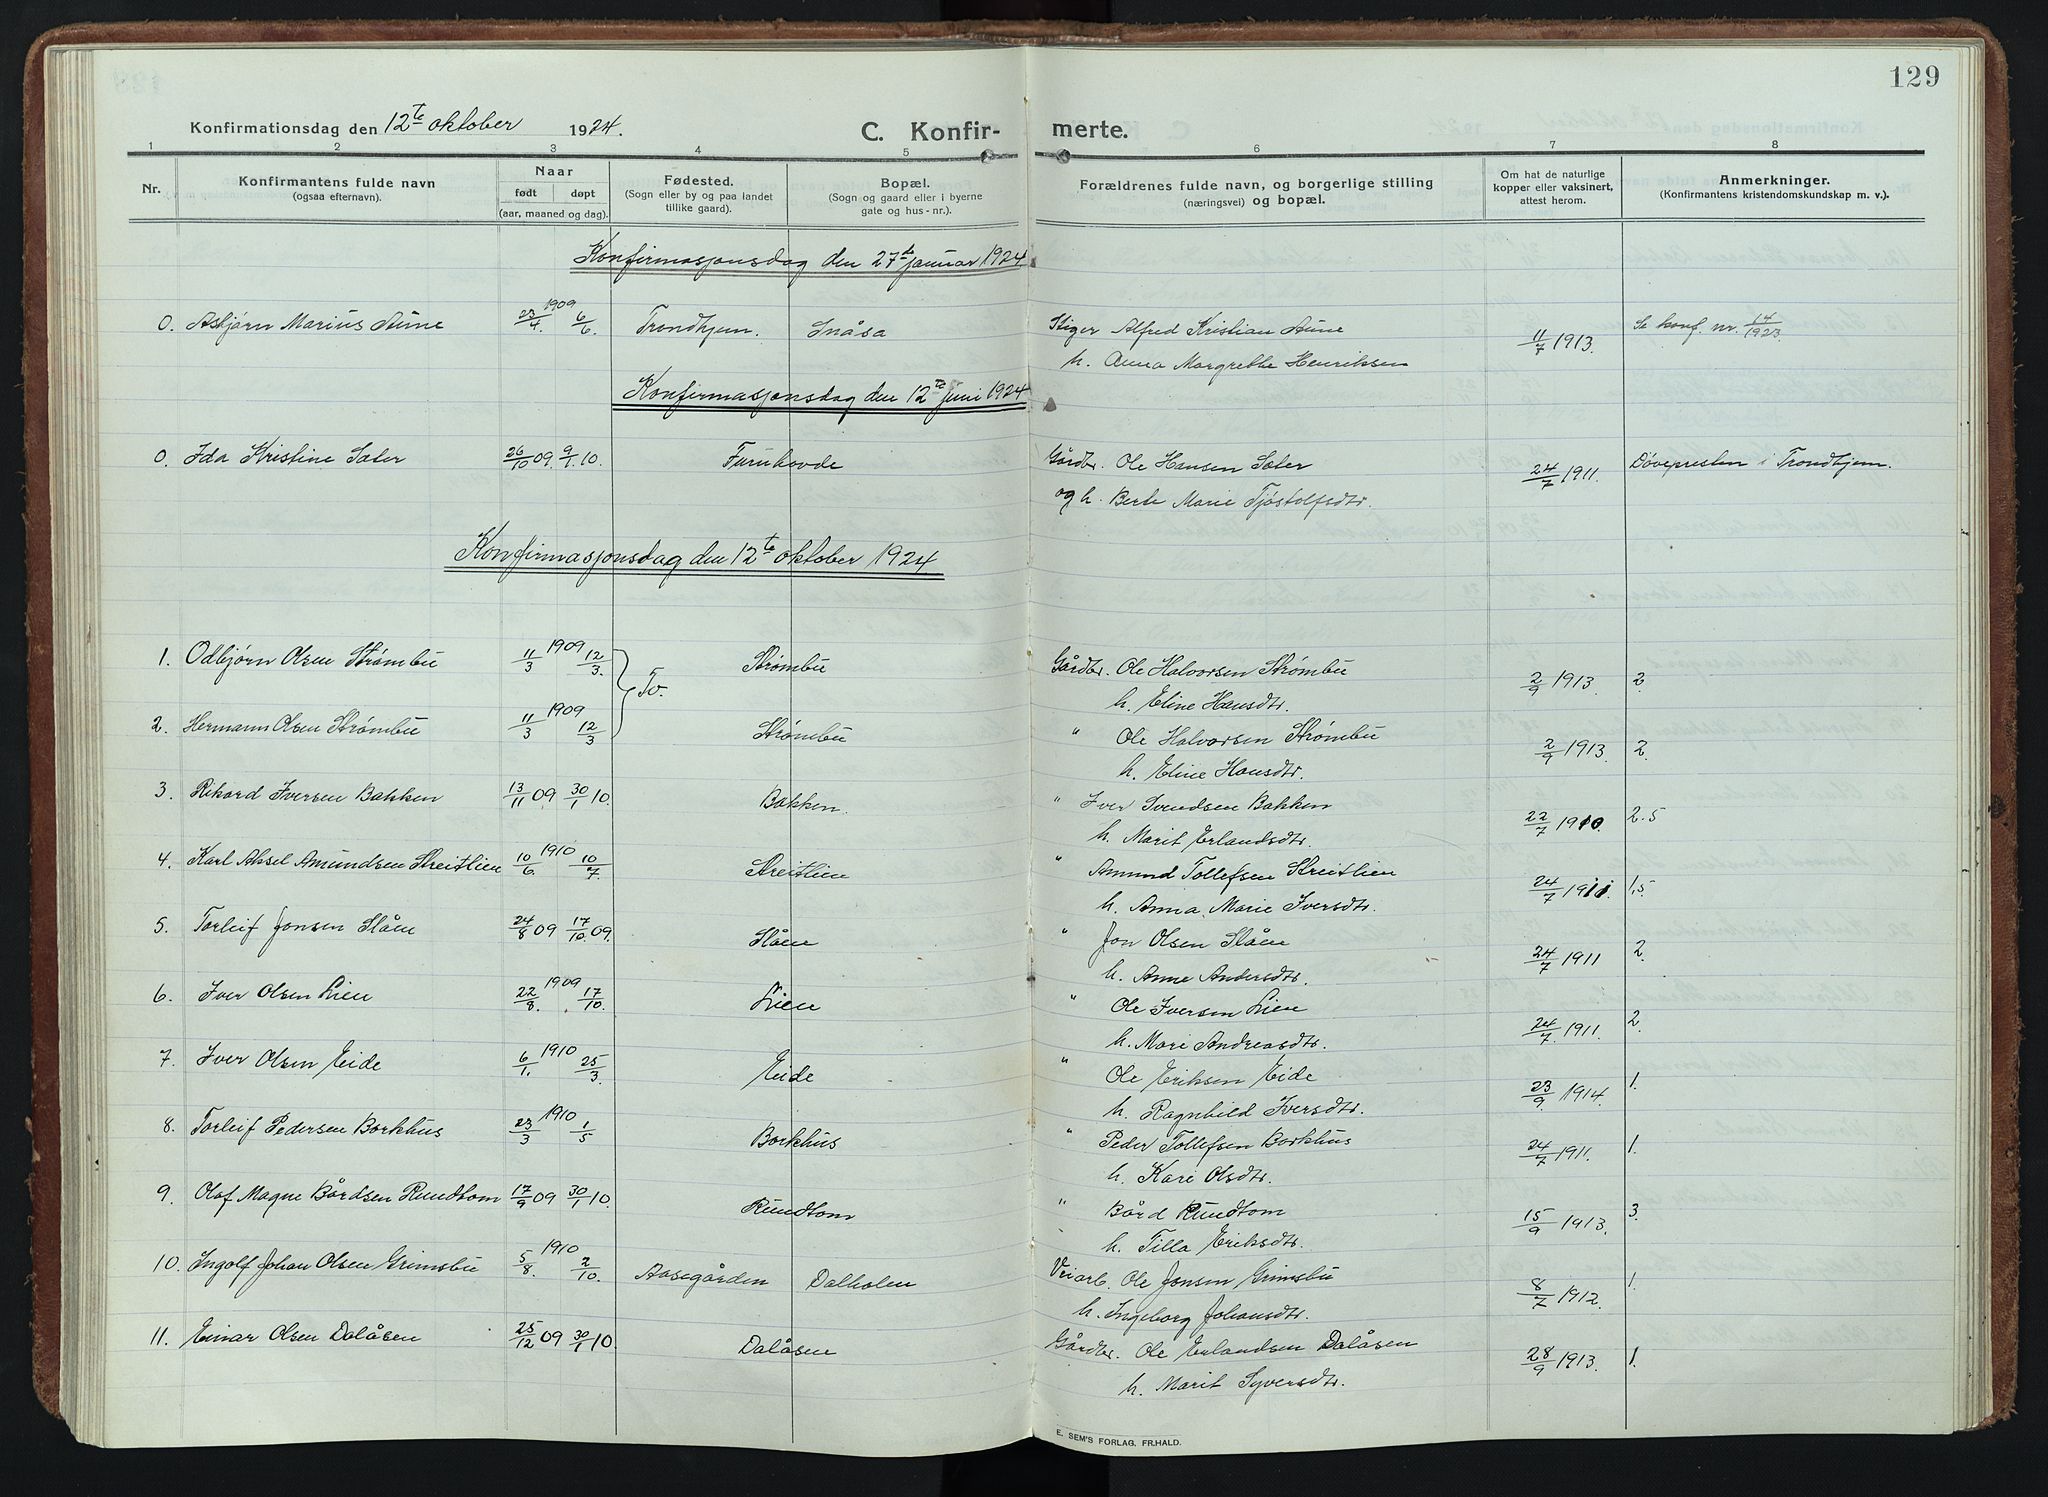 129
Konfirmationsdag den 12te oktober 1924.
C. Konfirmerte.
1 2 3 4 5 6 7 8
Nr.
Konfirmantens fulde navn
(ogsaa efternavn).
Naar
født døpt
(aar, maaned og dag).
Fødested.
(Sogn eller by og paa landet
tillike gaard).
Bopæl.
(Sogn og gaard eller i byerne
gate og hus-nr.).
Forældrenes fulde navn, og borgerlige stilling
(næringsvei) og bopæl.
Om hat de naturlige
kopper eller vaksinert,
attest herom.
Anmerkninger.
(Konfirmantens kristendomskundskap m. v.).
Konfirmasjonsdag den 27te januar 1924
0. Asbjørn Marius Aume 23/4 1909 6/6 Trondhjem. Snåsa Stiger Alfred Kristian Aune 11/7 1913. Se konf. nr. 14/1923.
h. Anna Margrethe Henriksen
Konfirmasjonsdag den 12te juni 1924
0. Ida Kristine Sæter 26/10 09. 9/1 10. Furuhovde Gårdbr. Ole Hansen Sæter 24/7 1911. Døvepresten i Trondhjem.
og h. Berte Marie Tjøstolfsdtr.
Konfirmasjonsdag den 12te oktober 1924
1. Odbjørn Olsen Strømbu 11/3 1909 12/3. Tv. Strømbu Gårdbr. Ole Halvorsen Strømbu 2/9 1913 2.
h. Eline Hansdtr.
2. Hermann Olsen Strømbu 11/3 1909 12/3 Strømbu " Ole Halvorsen Strømbu 2/9 1913. 2.
h. Eline Hansdtr.
3. Rikard Iversen Bakken 13/11 09 30/1 10. Bakken. " Iver Svendsen Bakken 22/7 1910. 2.5
h. Marit Erlandsdtr.
4. Karl Aksel Amundsen Streitlien 10/6 1910 10/7. Streitlien " Amund Tollefsen Streitlien 24/7 1911. 1,5
h. Anna Marie Iversdtr.
5. Torleif Jonsen Slåen 24/8 09 17/10. 09. Slåen " Jon Olsen Slåen 24/7 1911 2.
h. Anne Andersdtr.
6. Iver Olsen Lien 22/8. 1909 17/10. Lien " Ole Iversen Lien 24/7. 1911. 2.
h. Mari Andreasdtr.
7. Iver Olsen Eide 6/1. 1910 25/3. Eide " Ole Eriksen Eide 23/9. 1914. 1.
h. Ragnhild Iversdtr.
8. Torleif Pedersen Borkhus 23/3 1910 1/5 Borkhus " Peder Tollefsen Borkhus 24/7 1911. 1.
h. Kari Olsdtr.
9. Olaf Magne Bårdsen Rundtom 17/9 09 30/1 10. Rundtom " Bård Rundtom 15/9 1913. 3.
h. Tilla Eriksdtr.
10. Ingolf Johan Olsen Grimsbu 5/8. 1910 2/10. Aasegården Dalholen Veiarb. Ole Jonsen Grimsbu 8/7 1912. 1.
h. Ingeborg Johansdtr.
11. Einar Olsen Dalåsen 25/12 09 30/1 10. Dalåsen Gårdbr. Ole Erlandsen Dalåsen 28/9 1913. 1.
h. Marit Syversdtr.
E. SEM'S FORLAG, FR.HALD.